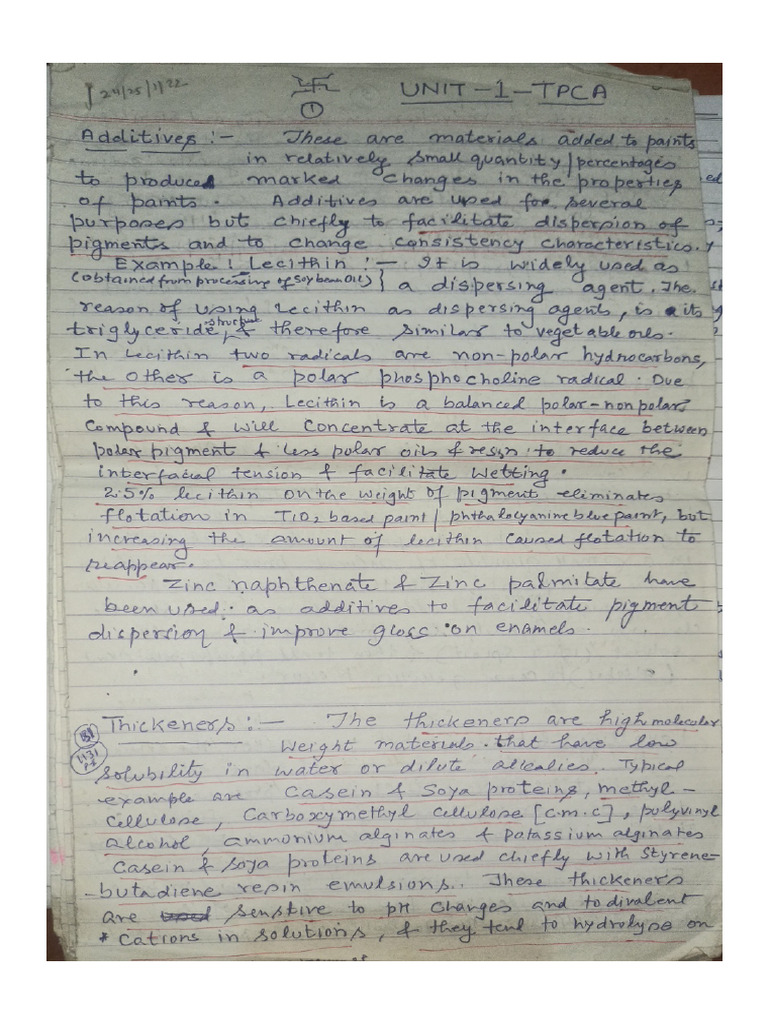 24/25/11/22
UNIT-1-TPCA
1
Additives :- These are materials added to paints
in relatively small quantity/percentages
to produce marked changes in the properties
of paints. Additives are used for several
purposes but chiefly to facilitate dispersion of
pigments and to change consistency characteristics.
Example: Lecithin :- It is widely used as
(obtained from processing of Soybean Oil) } a dispersing agent. The
reason of using Lecithin as dispersing agents, is its
triglyceride structure, & therefore similar to vegetable oils.
In Lecithin two radicals are non-polar hydrocarbons,
the other is a polar phosphocholine radical. Due
to this reason, Lecithin is a balanced polar-nonpolar
Compound & will concentrate at the interface between
polar pigment & less polar oils & resin to reduce the
interfacial tension & facilitate wetting.
2.5% lecithin on the weight of pigment eliminates
flotation in TiO2 based paint/phthalocyanine blue paint, but
increasing the amount of lecithin caused flotation to
reappear.
Zinc naphthenate & Zinc palmitate have
been used as additives to facilitate pigment
dispersion & improve gloss on enamels.
Thickeners :- The thickeners are high molecular
Weight materials that have low
solubility in water or dilute alkalies. Typical
example are Casein & Soya proteins, methyl-
cellulose, Carboxymethyl cellulose [C.M.C], polyvinyl
alcohol, ammonium alginates & Patassium alginates
Casein & Soya proteins are used chiefly with Styrene-
butadiene resin emulsions. These thickeners
are senstive to pH changes and to divalent
* Cations in solutions, & they tend to hydrolyse on